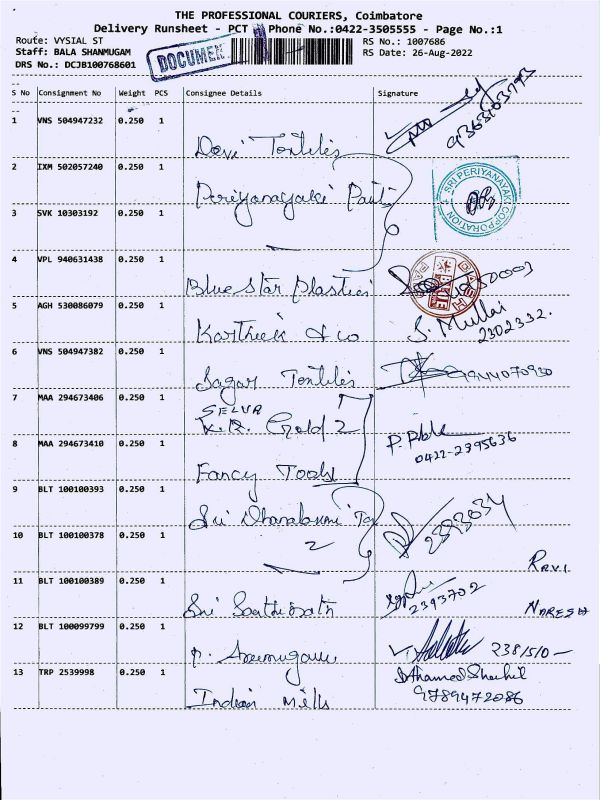 THE PROFESSIONAL COURIERS, Coimbatore
Delivery Runsheet - PCT Phone No.:0422-3505555 - Page No.:1
Route: VYSIAL ST RS No.: 1007686
Staff: BALA SHANMUGAM DOCUMEN RS Date: 26-Aug-2022
DRS No.: DCJB100768601
S No Consignment No Weight PCS Consignee Details Signature
1 VNS 504947232 0.250 1
Devi Textiles
2 IXM 502057240 0.250 1
Periyanayaki SRI PERIYANAYAKI CORPORATION
3 SVK 10303192 0.250 1
4 VPL 940631438 0.250 1
Blue Star Plastics
5 AGH 530086079 0.250 1
Karthick & co S. Mullai
2302332.
6 VNS 504947382 0.250 1
Sagar Textiles 9944070930
7 MAA 294673406 0.250 1
SELVA
K.R. Gold 2
8 MAA 294673410 0.250 1 0422-2395636
Fancy Tools
9 BLT 100100393 0.250 1
Sri Dhanalaxmi
10 BLT 100100378 0.250 1 2393034
2 RAVI
11 BLT 100100389 0.250 1
Sri 2393702 NARESH
12 BLT 100099799 0.250 1
P. Arumugam 238/5/0-
13 TRP 2539998 0.250 1
Indian Mills 9789472086